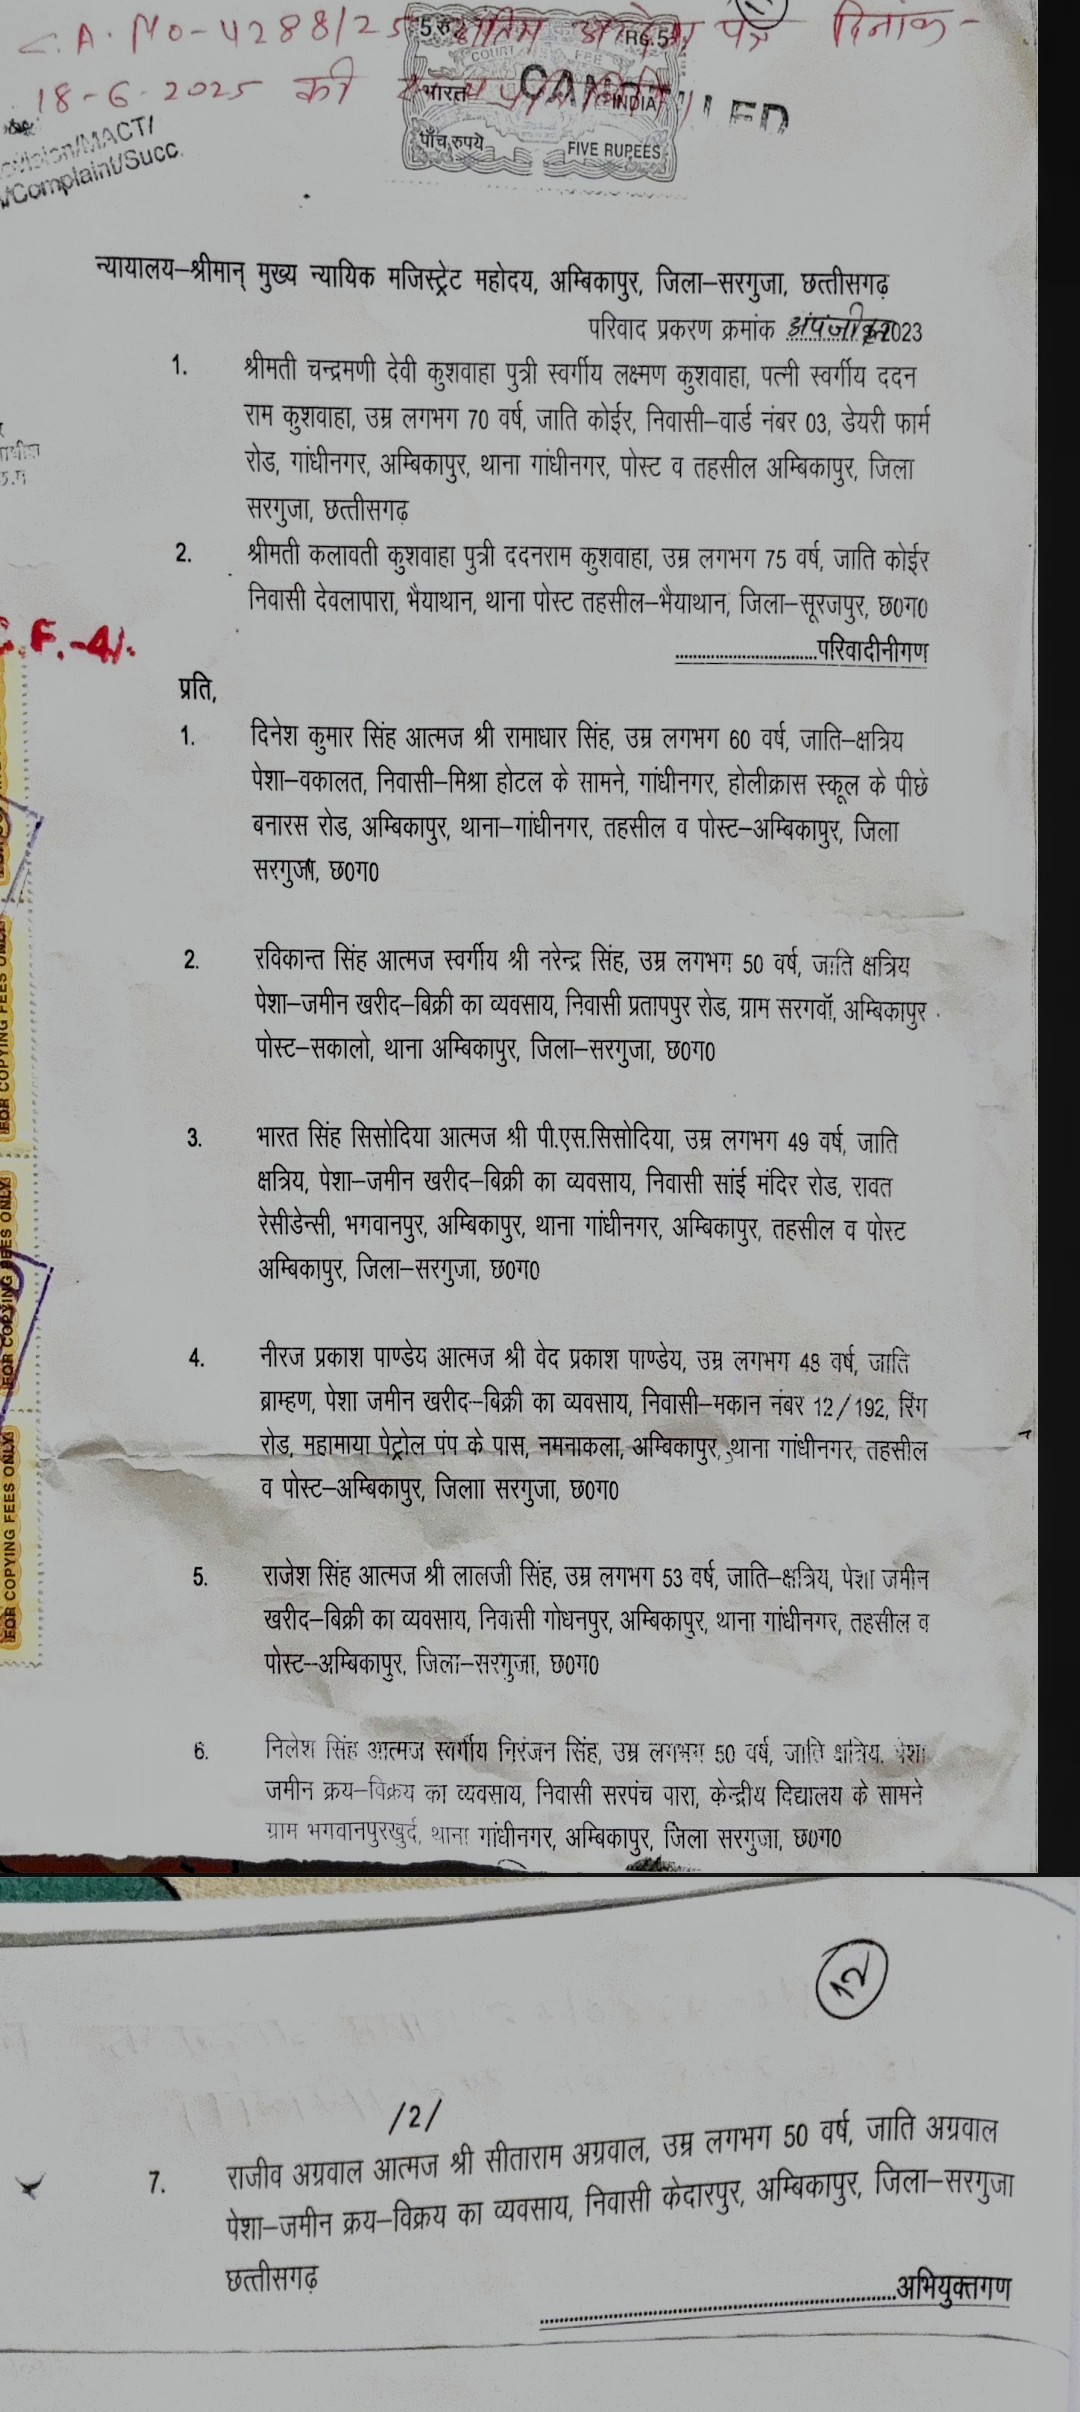 C.A. No-4288/25 अंतिम आदेश पत्र दिनांक-
18-6-2025 की
5 रु RG.5
COURT FEE
भारत INDIA
CAN LLED
पाँच रुपये FIVE RUPEES
/MACT/
/Complaint/Succ.
न्यायालय–श्रीमान् मुख्य न्यायिक मजिस्ट्रेट महोदय, अम्बिकापुर, जिला–सरगुजा, छत्तीसगढ़
परिवाद प्रकरण क्रमांक अपंजीकृत 2023
1. श्रीमती चन्द्रमणी देवी कुशवाहा पुत्री स्वर्गीय लक्ष्मण कुशवाहा, पत्नी स्वर्गीय ददन
राम कुशवाहा, उम्र लगभग 70 वर्ष, जाति कोईर, निवासी–वार्ड नंबर 03, डेयरी फार्म
रोड, गांधीनगर, अम्बिकापुर, थाना गांधीनगर, पोस्ट व तहसील अम्बिकापुर, जिला
सरगुजा, छत्तीसगढ़
2. श्रीमती कलावती कुशवाहा पुत्री ददनराम कुशवाहा, उम्र लगभग 75 वर्ष, जाति कोईर
निवासी देवलापारा, भैयाथान, थाना पोस्ट तहसील–भैयाथान, जिला–सूरजपुर, छ0ग0
C.F.-4/-
..............................परिवादीनीगण
प्रति,
1. दिनेश कुमार सिंह आत्मज श्री रामाधार सिंह, उम्र लगभग 60 वर्ष, जाति–क्षत्रिय
पेशा–वकालत, निवासी–मिश्रा होटल के सामने, गांधीनगर, होलीक्रास स्कूल के पीछे
बनारस रोड, अम्बिकापुर, थाना–गांधीनगर, तहसील व पोस्ट–अम्बिकापुर, जिला
सरगुजा, छ0ग0
2. रविकान्त सिंह आत्मज स्वर्गीय श्री नरेन्द्र सिंह, उम्र लगभग 50 वर्ष, जाति क्षत्रिय
पेशा–जमीन खरीद–बिक्री का व्यवसाय, निवासी प्रतापपुर रोड, ग्राम सरगवॉ, अम्बिकापुर
पोस्ट–सकालो, थाना अम्बिकापुर, जिला–सरगुजा, छ0ग0
3. भारत सिंह सिसोदिया आत्मज श्री पी.एस.सिसोदिया, उम्र लगभग 49 वर्ष, जाति
क्षत्रिय, पेशा–जमीन खरीद–बिक्री का व्यवसाय, निवासी सांई मंदिर रोड, रावत
रेसीडेन्सी, भगवानपुर, अम्बिकापुर, थाना गांधीनगर, अम्बिकापुर, तहसील व पोस्ट
अम्बिकापुर, जिला–सरगुजा, छ0ग0
4. नीरज प्रकाश पाण्डेय आत्मज श्री वेद प्रकाश पाण्डेय, उम्र लगभग 48 वर्ष, जाति
ब्राम्हण, पेशा जमीन खरीद–बिक्री का व्यवसाय, निवासी–मकान नंबर 12/192, रिंग
रोड, महामाया पेट्रोल पंप के पास, नमनाकला, अम्बिकापुर, थाना गांधीनगर, तहसील
व पोस्ट–अम्बिकापुर, जिलाा सरगुजा, छ0ग0
5. राजेश सिंह आत्मज श्री लालजी सिंह, उम्र लगभग 53 वर्ष, जाति–क्षत्रिय, पेशा जमीन
खरीद–बिक्री का व्यवसाय, निवासी गोधनपुर, अम्बिकापुर, थाना गांधीनगर, तहसील व
पोस्ट–अम्बिकापुर, जिला–सरगुजा, छ0ग0
6. निलेश सिंह आत्मज स्वर्गीय निरंजन सिंह, उम्र लगभग 50 वर्ष, जाति क्षत्रिय, पेशा
जमीन क्रय–विक्रय का व्यवसाय, निवासी सरपंच पारा, केन्द्रीय विद्यालय के सामने
ग्राम भगवानपुरखुर्द, थाना गांधीनगर, अम्बिकापुर, जिला सरगुजा, छ0ग0
FOR COPYING FEES ONLY
FOR COPYING FEES ONLY
FOR COPYING FEES ONLY
/2/
7. राजीव अग्रवाल आत्मज श्री सीताराम अग्रवाल, उम्र लगभग 50 वर्ष, जाति अग्रवाल
पेशा–जमीन क्रय–विक्रय का व्यवसाय, निवासी केदारपुर, अम्बिकापुर, जिला–सरगुजा
छत्तीसगढ़
..............................अभियुक्तगण